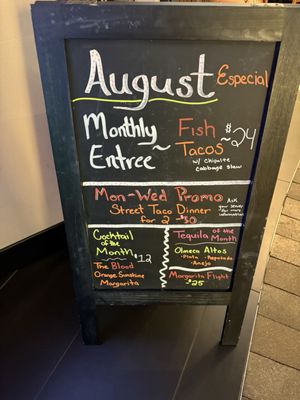 August Especial
Monthly ~ Entree ~
Fish Tacos ~ $24
w/ Chipotle
cabbage slaw
Mon-Wed Promo
Street Taco Dinner
for 2 ~ $30
Ask
your server
for more
information
Cocktail
of the
Month $12
The Blood
Orange Sunshine
Margarita
Tequila of the
Month
Olmeca Altos
- Plata - Reposado
- Anejo
Margarita Flight
$25